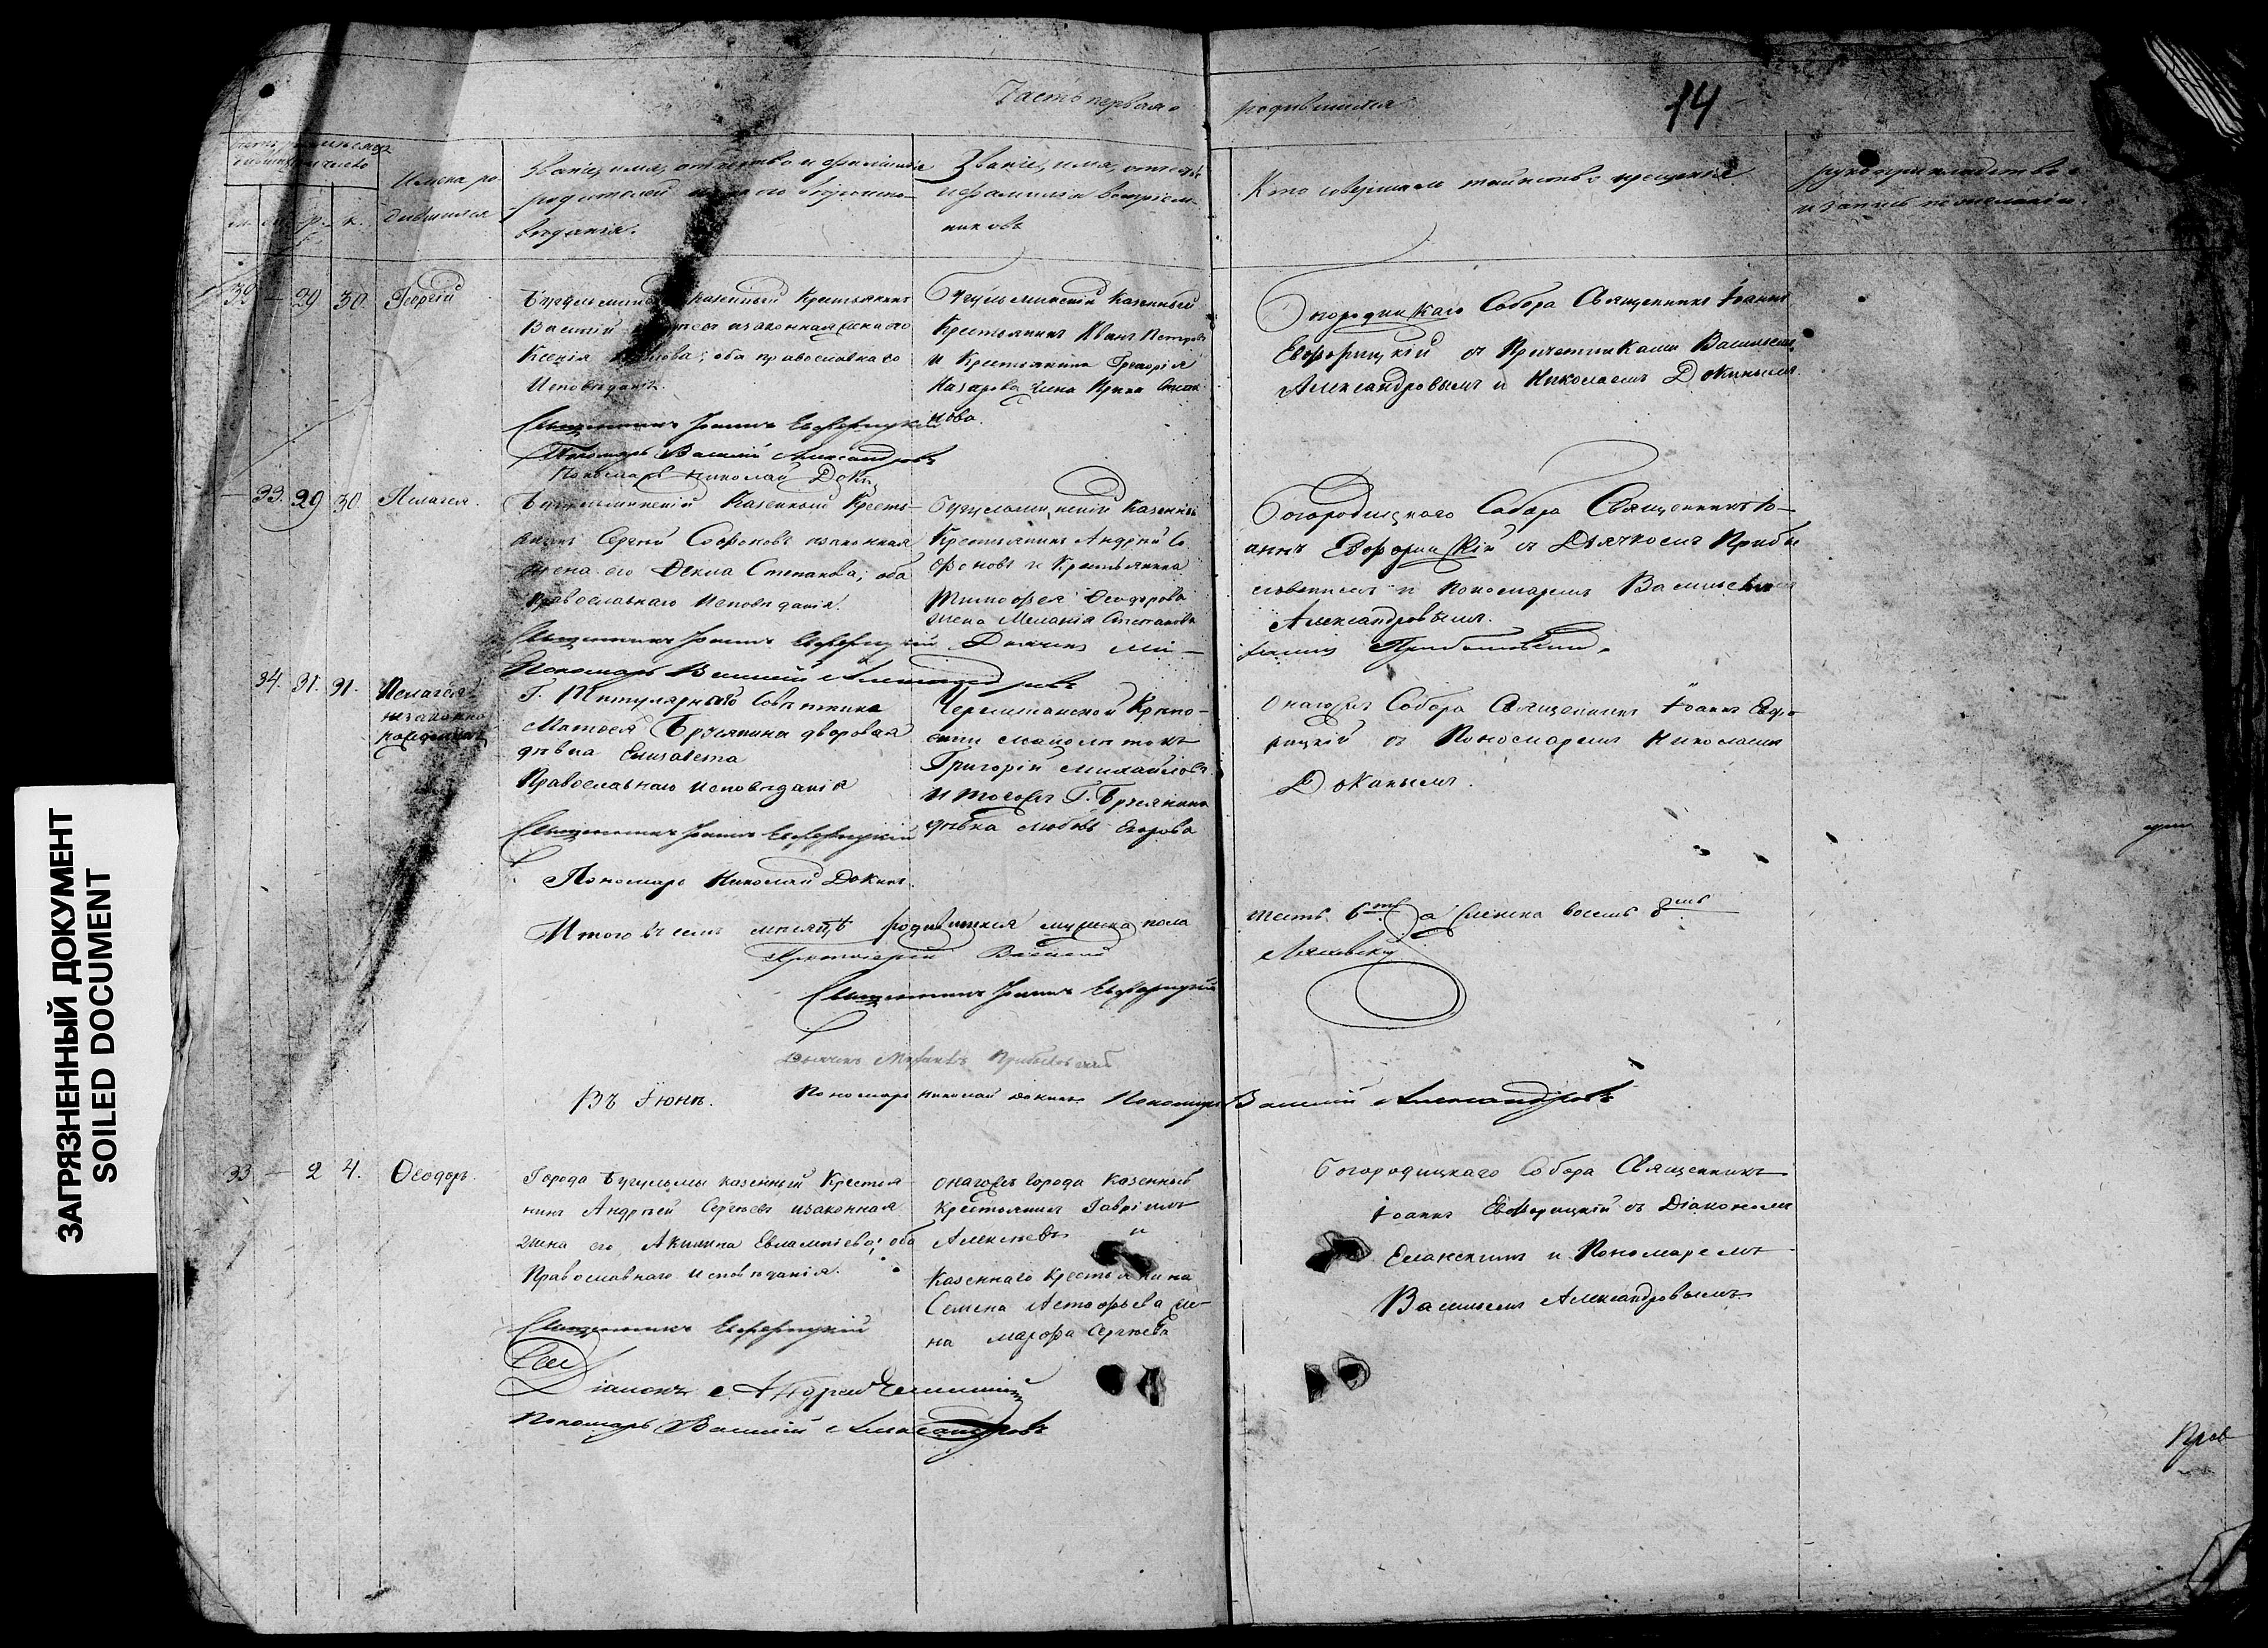 ЗАГРЯЗНЕННЫЙ ДОКУМЕНТ
SOILED DOCUMENT
Часть первая о родившихся
14
Имена ро-
дившихся
Званіе, имя, отчество и фамилія
родителей и какого вѣроиспо-
вѣданія.
Званіе, имя, отчест
и фамилія воспріем-
никовъ
Кто совершалъ таинство крещенія
рукоприкладство
м. ж. р. к.
32 — 29 30. Георгій
казенный Крестьянинъ
Василій
Ксенія оба православнаго
Исповѣданія.
Бугульминскій Казенный
Крестьянинъ Иванъ Петровъ
и Крестьянина Григорія
Назарова
нова.
Богородицкаго Собора Священникъ Іоаннъ
Евфорицкій съ Причетниками Васильемъ
Александровымъ и Николаемъ Докинымъ
Священникъ Іоаннъ Евфорицкій
Пономарь Василій Александровъ
Пономарь Николай Докинъ
33. 29 30. Пелагея.
Бугульминскій Казенный Кресть-
янинъ Сергей Софроновъ и законная
жена его Ѳекла Степанова; оба
Православнаго Исповѣданія.
Бугульминскій Казенный
Крестьянинъ Андрей Со-
фроновъ и Крестьянина
Тимофея Ѳеодорова
жена Меланія Степанова
Богородицкаго Собора Священникъ Іо-
аннъ Евфорицкій съ Дьячкомъ Прибы
ловскимъ и Пономаремъ Васильемъ
Александровымъ.
Священникъ Іоаннъ Евфорицкій Дьячекъ
Пономарь Василій Александровъ
34. 31. 31. Пелагея
незаконно
рожденная
Г. Титулярнаго Совѣтника
Матвея дворовая
дѣвка Елисавета
Православнаго Исповѣданія
Черемшанской Крѣпо-
сти малолѣтокъ
Григорій Михайловъ
и тогожъ Г.
дѣвка Любовь Егорова
Онагожъ Собора Священникъ Іоаннъ Евфо-
рицкій съ Пономаремъ Николаемъ
Докинымъ.
Священникъ Іоаннъ Евфорицкій
Пономарь Николай Докинъ.
Итого въ семъ мѣсяцѣ родившихся мужеска пола шесть 6ть а женска восемь 8мь
Протоіерей Василій
Священникъ Іоаннъ Евфорицкій
Дьячекъ Прибыловскій
Пономарь Николай Докинъ Пономарь Василій Александровъ
Въ Іюнѣ.
33 — 2 4. Ѳеодоръ.
Города Бугульмы казенный Крестья-
нинъ Андрей Сергѣевъ и законная
жена его Акилина Евлампіева; оба
Православнаго Исповѣданія.
Онагожъ города Казенный
Крестьянинъ Гавріилъ
Алексѣевъ и
Казеннаго Крестьянина
Семена Астафьева же-
на Марфа Сергѣева
Богородицкаго Собора Священникъ
Іоаннъ Евфорицкій съ Діакономъ
Еланскимъ и Пономаремъ
Васильемъ Александровымъ
Священникъ Евфорицкій
Діаконъ Андрей
Пономарь Василій Александровъ